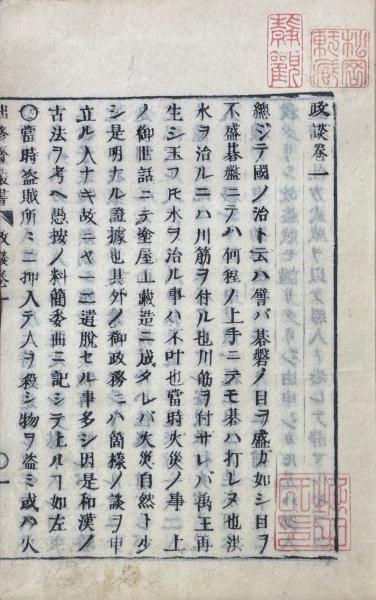 政談卷一
總ジテ國ノ治ト云ハ譬バ碁盤ノ目ヲ盛ガ如シ目ヲ
不盛碁盤ニテハ何程ノ上手ニテモ碁ハ打レヌ也洪
水ヲ治ルニハ川筋ヲ付ル也川筋ヲ付サレバ禹王再
生シ玉フ𪜈水ヲ治ル事ハ不叶也當時火災ノ事上
ノ御世話ニテ塗屋土藏造ニ成タレバ火災自然ト少
シ是明ナル證據也其外ノ御政務ニハ箇樣ノ談ヲ申
立ル人ナキ故ニヤ一二遺脫セル事多シ因是和漢ノ
古法ヲ考ヘ愚按ノ料簡委曲ニ記シテ上ルヿ如左
○當時盜賊所々ニ押入テ人ヲ殺シ物ヲ盜ミ或ハ火
政談卷一
○一